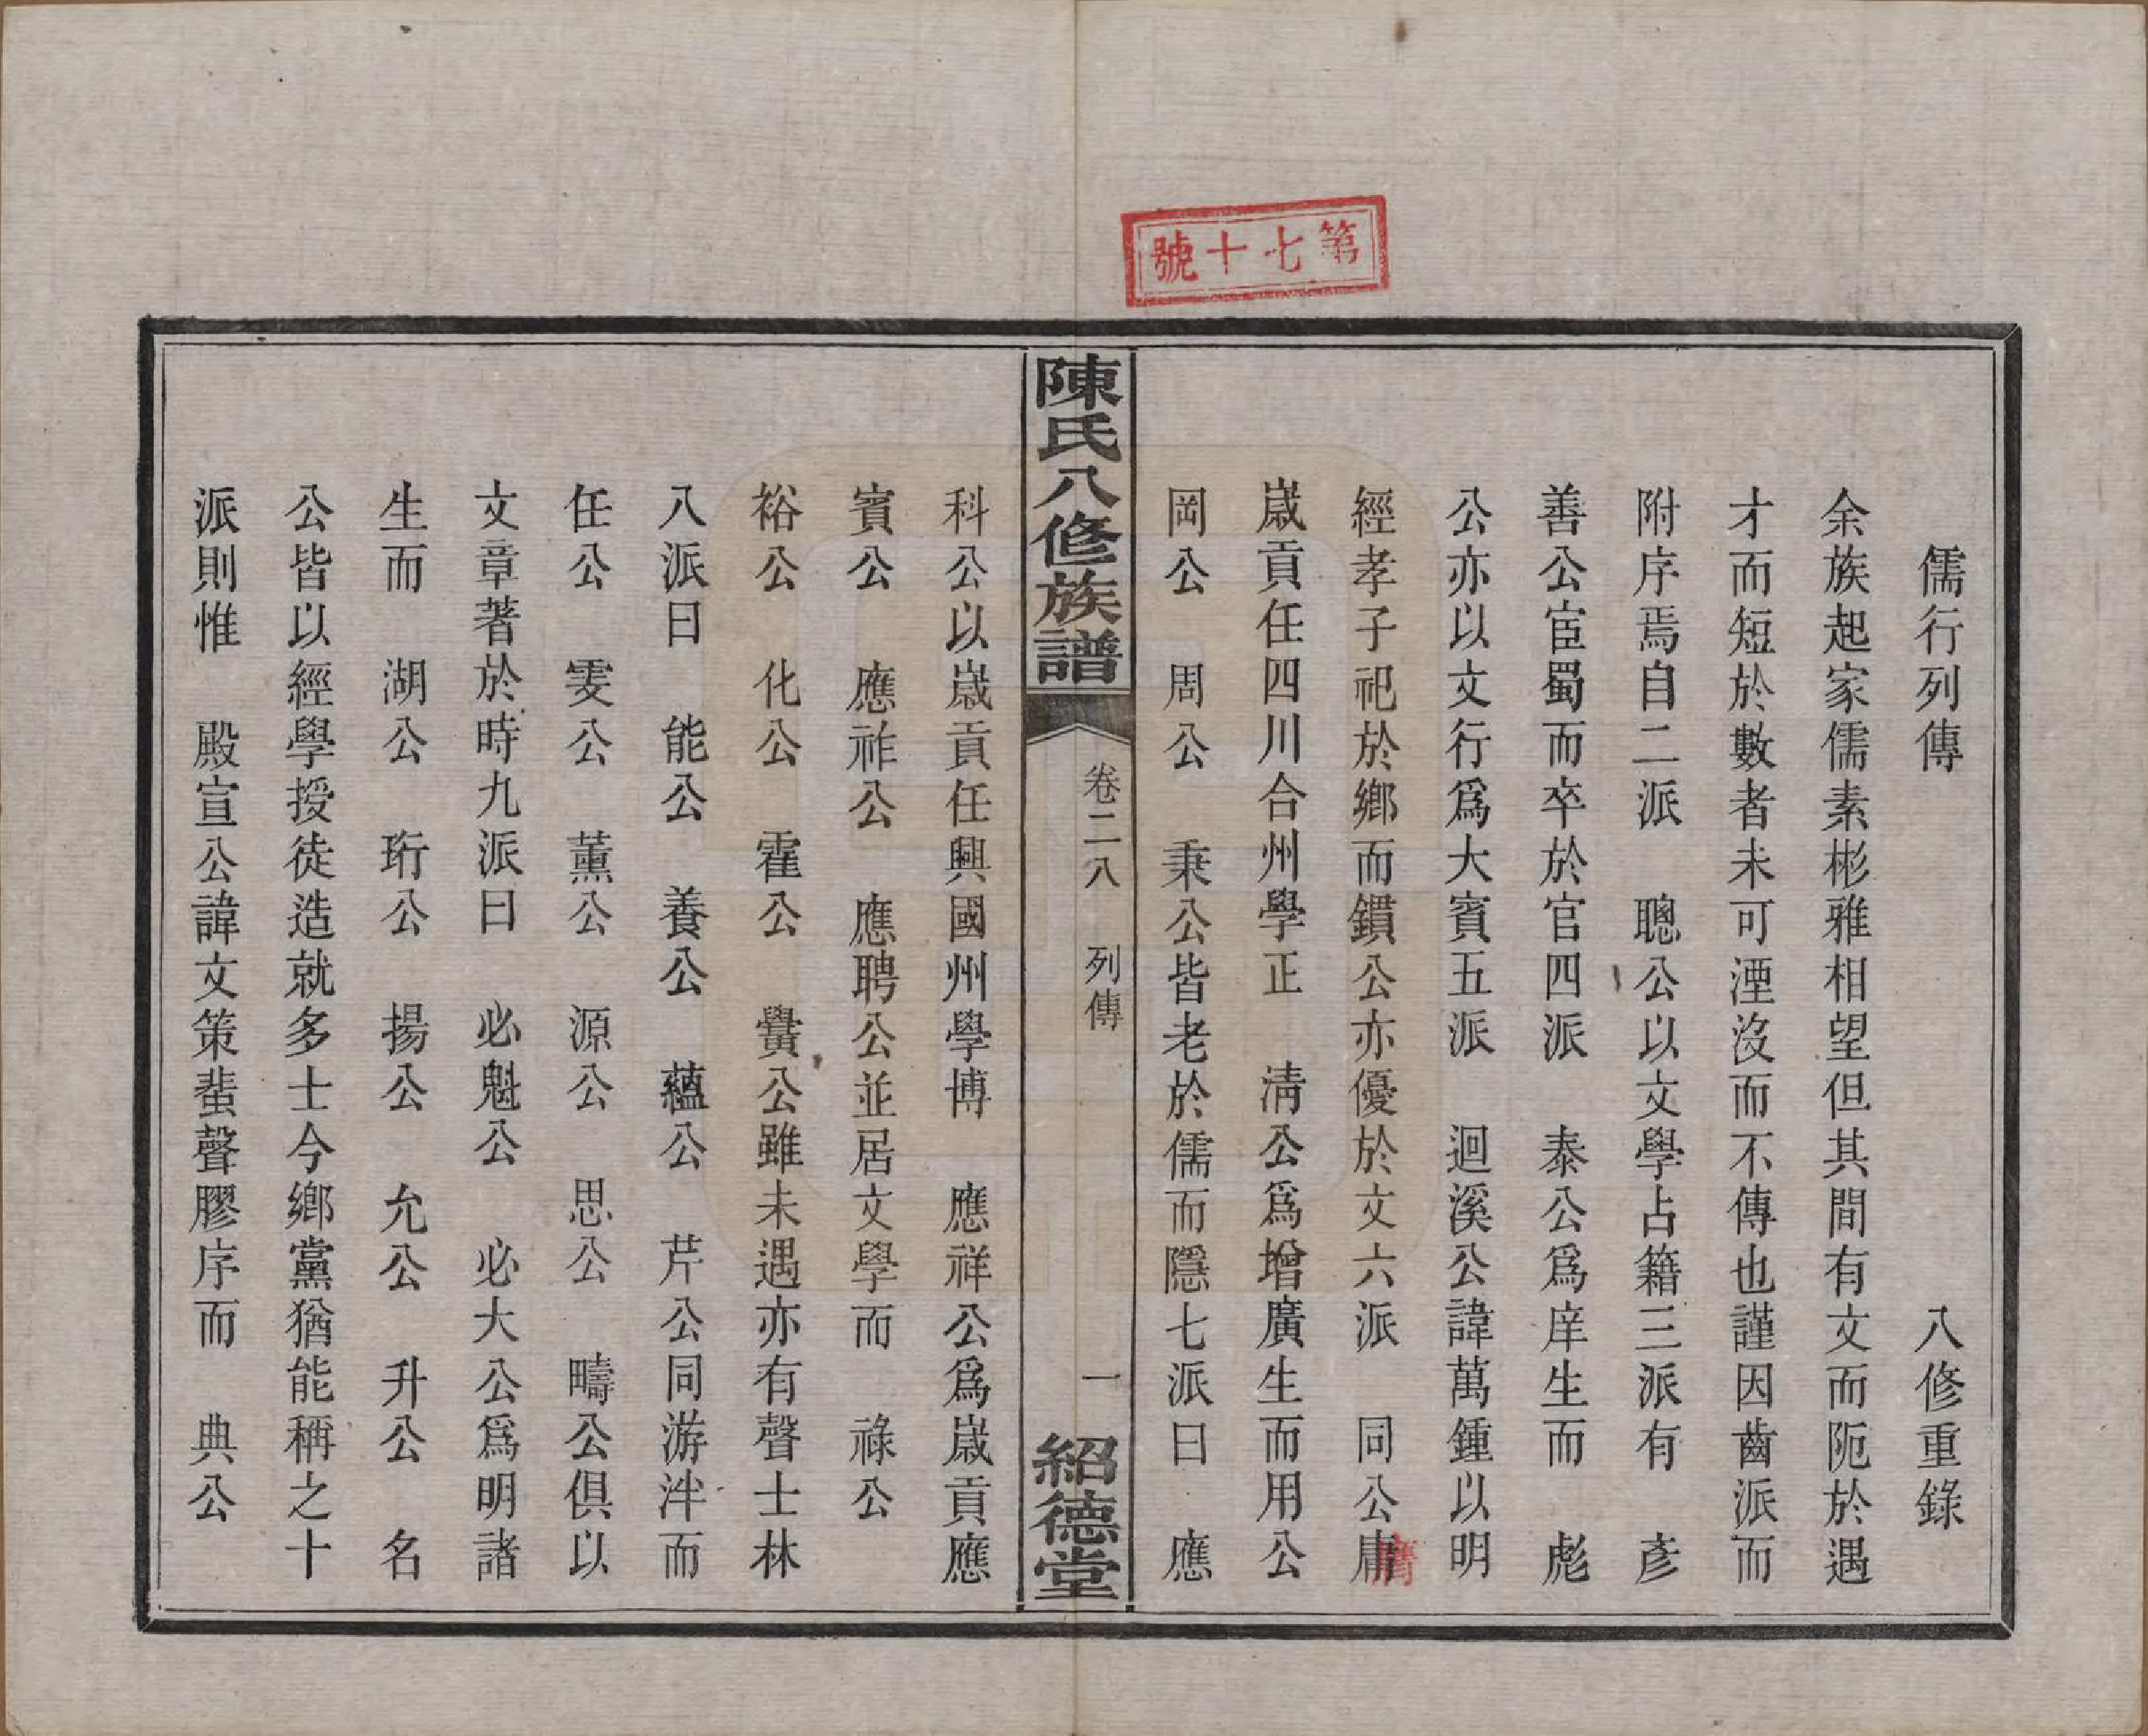 第七十號
儒行列傳　八修重錄
余族起家儒素彬雅相望但其間有文而阨於遇
才而短於數者未可湮沒而不傳也謹因齒派而
附序焉自二派　聰公以文學占籍三派有　彥
善公宦蜀而卒於官四派　泰公爲庠生而　彪
公亦以文行爲大賓五派　迴溪公諱萬鍾以明
經孝子祀於鄉而鐀公亦優於文六派　同公膺
歲貢任四川合州學正　淸公爲增廣生而用公
岡公　周公　秉公皆老於儒而隱七派曰　應
陳氏八修族譜　卷二八　列傳　一　紹德堂
科公以歲貢任興國州學博　應祥公爲歲貢應
賓公　應祚公　應聘公並居文學而　祿公
裕公　化公　霍公　黌公雖未遇亦有聲士林
八派曰　能公　養公　蘊公　芹公同游泮而
任公　雯公　薰公　源公　思公　疇公俱以
文章著於時九派曰　必魁公　必大公爲明諸
生而　湖公　珩公　揚公　允公　升公　名
公皆以經學授徒造就多士今鄉黨猶能稱之十
派則惟　殿宣公諱文策蜚聲膠序而　典公